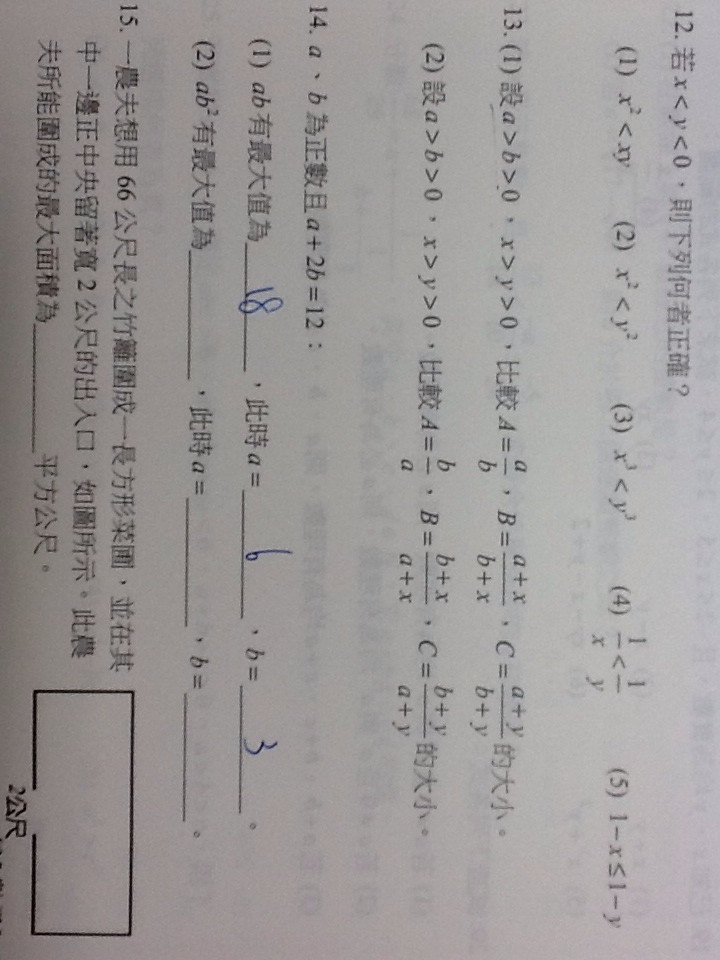 12. 若 x < y < 0，則下列何者正確？
(1) x² < xy (2) x² < y² (3) x³ < y³ (4) 1/x < 1/y (5) 1 − x ≤ 1 − y
13. (1) 設 a > b > 0，x > y > 0，比較 A = a/b，B = (a+x)/(b+x)，C = (a+y)/(b+y) 的大小。
(2) 設 a > b > 0，x > y > 0，比較 A = b/a，B = (b+x)/(a+x)，C = (b+y)/(a+y) 的大小。
14. a、b 為正數且 a + 2b = 12：
(1) ab 有最大值為 18，此時 a = 6，b = 3。
(2) ab² 有最大值為____，此時 a = ____，b = ____。
15. 一農夫想用 66 公尺長之竹籬圍成一長方形菜圃，並在其
中一邊正中央留著寬 2 公尺的出入口，如圖所示。此農
夫所能圍成的最大面積為____平方公尺。
2公尺